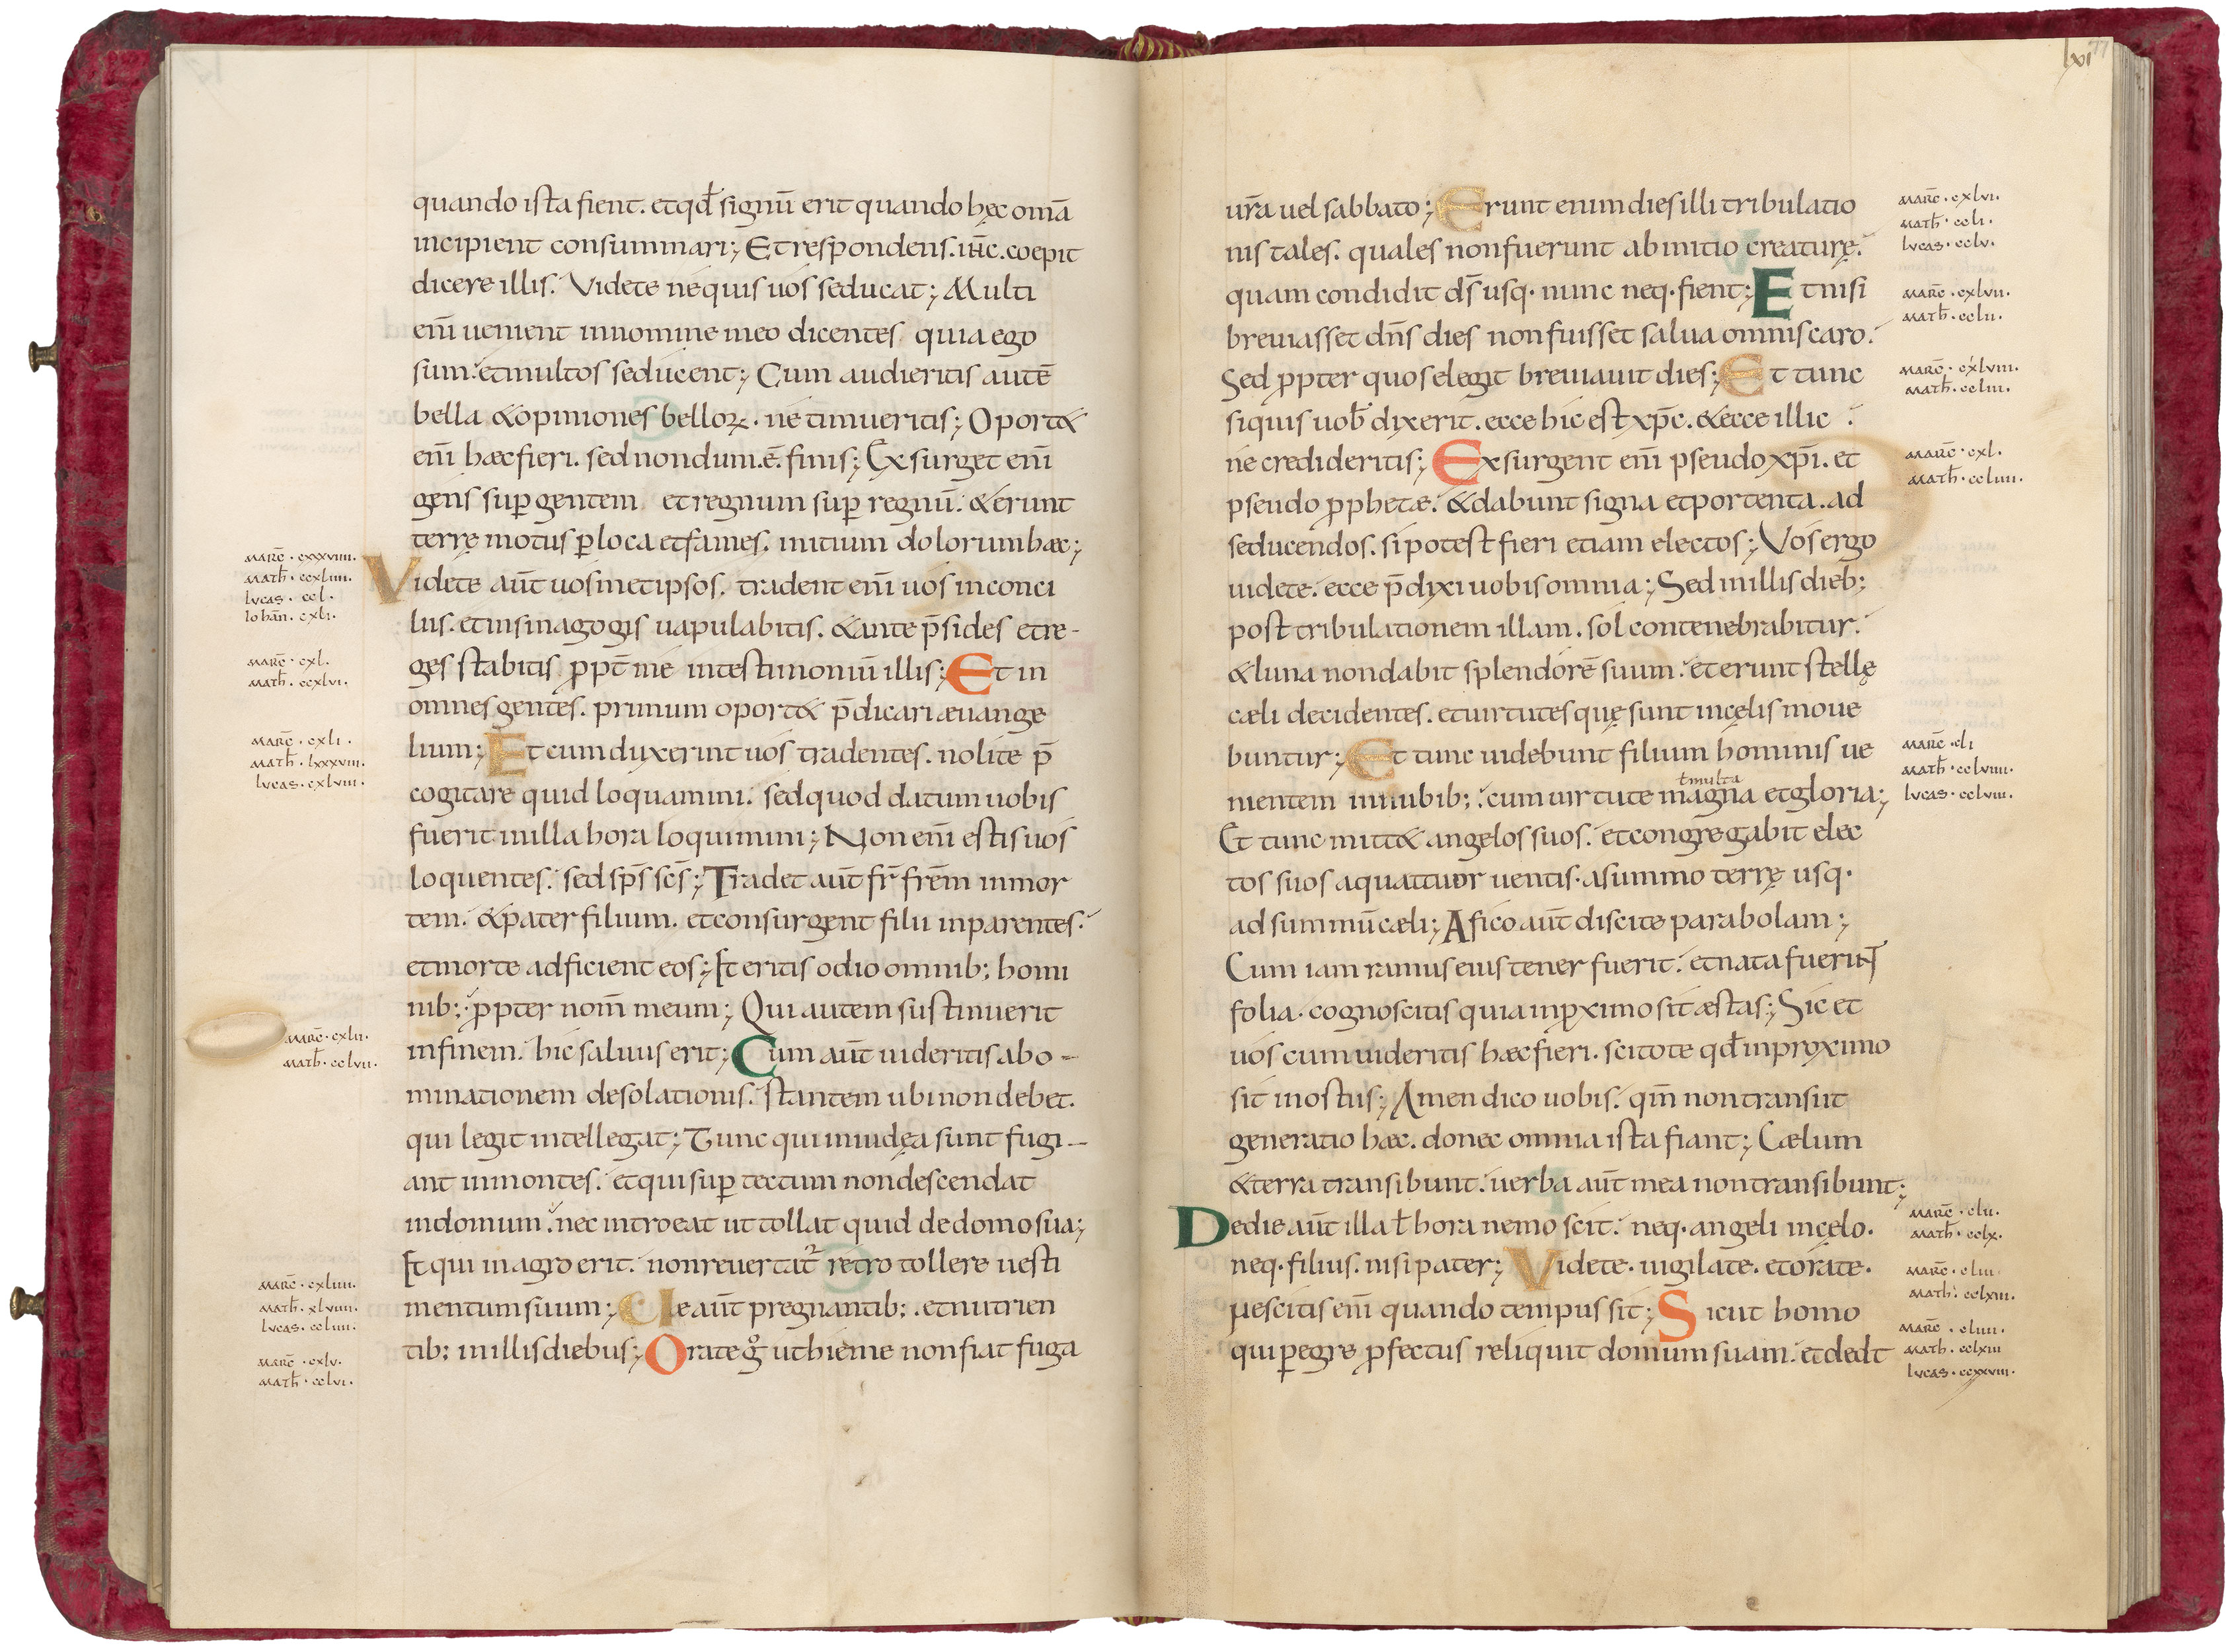 quando ista fient. etqđ signū erit quando hęc om̄a
incipient consummari; Et respondens. ih̄c. coepit
dicere illis. Videte nequis uos seducat; Multi
enī uenient innomine meo dicentes quia ego
sum. etmultos seducent; Cum audieritis autē
bella &opiniones belloꝝ. ne timueritis; Oport&
enī haec fieri. sed nondum. ē. finis; Exsurget enī
gens suꝑ gentem et regnum suꝑ regnū. &erunt
terrę motus ꝑ loca etfames. initium dolorum haec;
Videte aūt uosmetipsos. tradent enī uos inconci
liis. etinsinagogis uapulabitis. &ante p̄sides etre-
ges stabitis ꝓpt̄ me intestimoniū illis; Et in
omnes gentes. primum oport& p̄dicari æuange
lium; Et cum duxerint uos tradentes. nolite p̄
cogitare quid loquamini. sed quod datum uobis
fuerit inilla hora loquimini; Non enī estis uos
loquentes. sed sp̄s sc̄s; Tradet aūt fr̄ frēm inmor
tem. &pater filium. etconsurgent filii inparentes.
etmorte adficient eos; Et eritis odio omnib; homi
nib; ꝓpter nom̄ meum; Qui autem sustinuerit
infinem. hic saluus erit; Cum aūt uideritis abo-
minationem desolationis. stantem ubi non debet.
qui legit intellegat; Tunc qui iniudęa sunt fugi-
ant inmontes. etqui suꝑ tectum nondescendat
indomum. nec introeat ut tollat quid dedomo sua;
Et qui inagro erit. nonreuertat᷑ retro tollere uesti
mentum suum; Uę aūt pregnantib;. etnutrien
tib; inillis diebus; Orate g̊ uthieme non fiat fuga
marc̄. cxxxviiii.
math̄. ccxliiii.
lvcas. ccl.
iohan̄. cxli.
marc̄. cxl.
math̄. ccxlvi.
marc̄. cxli.
math̄. lxxxviii.
lvcas. cxlviii.
marc̄. cxlii.
math̄. cclvii.
marc̄. cxliiii.
math̄. xlviiii.
lvcas. ccliiii.
marc̄. cxlv.
math̄. cclvi.
lxi 77
ur̄a uel sabbato; Erunt enim dies illi tribulatio
nis tales. quales nonfuerunt abinitio creaturę.
quam condidit ds̄ usq. nunc neq. fient; Et nisi
breuiasset dn̄s dies nonfuisset salua omnis caro.
Sed ꝓpter quos elegit breuiauit dies; Et tunc
siquis uob̄ dixerit. ecce hic est xp̄c. &ecce illic.
ne credideritis; Exsurgent enī pseudoxp̄i. et
pseudo ꝓphetæ. &dabunt signa etportenta. ad
seducendos. si potest fieri etiam electos; Vos ergo
uidete. ecce p̄dixi uobis omnia; Sed inillis dieb;
post tribulationem illam. sol contenebrabitur.
&luna nondabit splendorē suum. et erunt stellę
cæli decidentes. etuirtutes quę sunt incęlis moue
buntur; Et tunc uidebunt filium hominis ue
nientem innubib;. cum uirtute magna etgloria;
ł multa
Et tunc mitt& angelos suos. etcongregabit elec
tos suos aquattuor uentis. asummo terrę usq.
ad summū cæli; Afico aūt discite parabolam;
Cum iam ramus eius tener fuerit. etnata fuerint
folia. cognoscitis quia inꝓximo sit æstas; Sic et
uos cum uideritis haec fieri. scitote qđ inproximo
sit inostiis; Amen dico uobis. qm̄ nontransiit
generatio haec. donec omnia ista fiant; Cælum
&terra transibunt. uerba aūt mea nontransibunt;
Dedie aūt illa ł hora nemo scit. neq. angeli incęlo.
neq. filius. nisi pater; Videte. uigilate. etorate.
nescitis enī quando tempus sit; Sicut homo
qui ꝑegre ꝓfectus reliquit domum suam. etdedt
marc̄. cxlvi.
math̄. ccli.
lvcas. cclv.
marc̄. cxlvii.
math̄. cclii.
marc̄. cxlviii.
math̄. ccliii.
marc̄. cxl.
math̄. ccliiii.
marc̄. cli
math̄. cclviiii.
lvcas. cclviii.
marc̄. clii.
math̄. cclx.
marc̄. cliii
math̄. cclxiii.
marc̄. cliiii.
math̄. cclxiii
lvcas. ccxxviii.